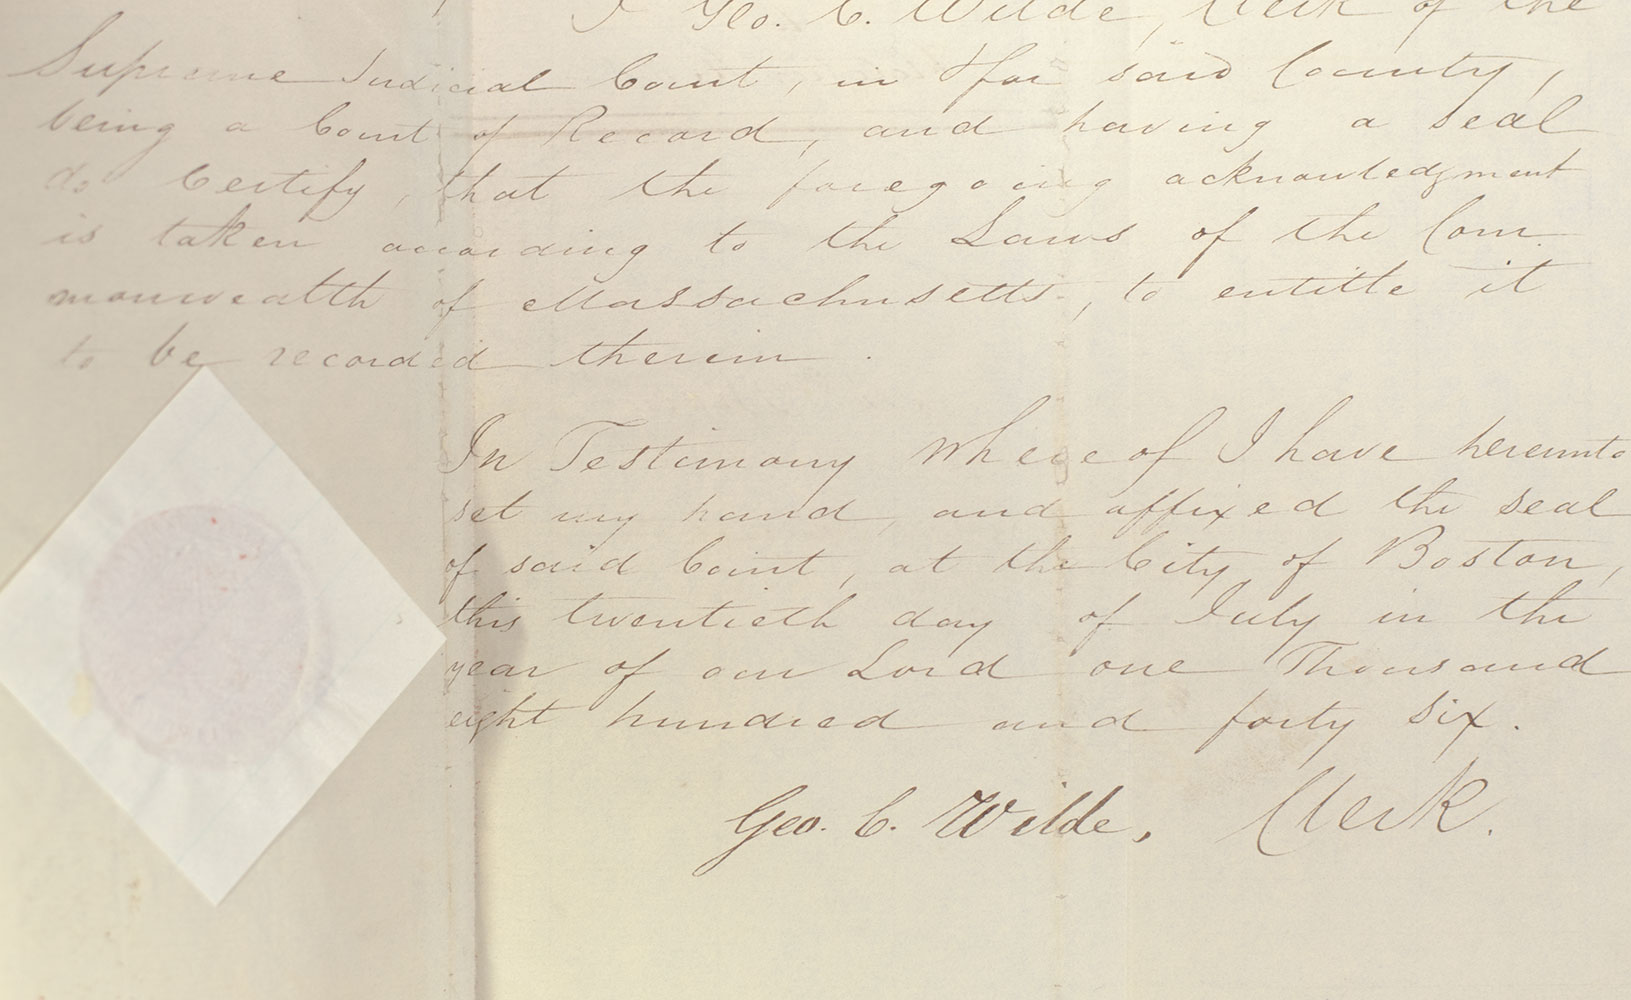 I Geo. C. Wilde, Clerk of the
Supreme Judicial Court, in & for said County,
being a Court of Record, and having a seal
do Certify, that the foregoing acknowledgment
is taken according to the Laws of the Com
monwealth of Massachusetts, to entitle it
to be recorded therein.
In Testimony Whereof I have hereunto
set my hand, and affixed the seal
of said Court, at the City of Boston,
this twentieth day of July in the
year of our Lord one Thousand
eight hundred and forty six.
Geo. C. Wilde, Clerk.